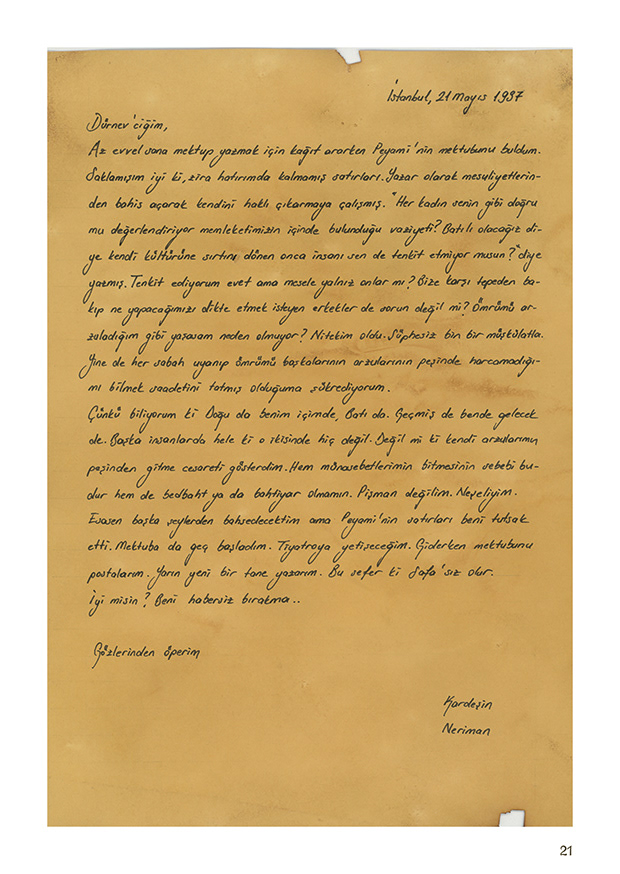 İstanbul, 21 Mayıs 1937
Dürnev'ciğim,
Az evvel sana mektup yazmak için kağıt ararken Peyami'nin mektubunu buldum.
Saklamışım iyi ki, zira hatırımda kalmamış satırları. Yazar olarak mesuliyetlerin-
den bahis açarak kendini haklı çıkarmaya çalışmış. "Her kadın senin gibi doğru
mu değerlendiriyor memleketimizin içinde bulunduğu vaziyeti? Batılı olacağız di-
ye kendi kültürüne sırtını dönen onca insanı sen de tenkit etmiyor musun?" diye
yazmış. Tenkit ediyorum evet ama mesele yalnız onlar mı? Bize karşı tepeden ba-
kıp ne yapacağımızı dikte etmek isteyen erkekler de sorun değil mi? Ömrümü ar-
zuladığım gibi yaşasam neden olmuyor? Nitekim oldu. Şüphesiz bin bir müşkülatla.
Yine de her sabah uyanıp ömrümü başkalarının arzularının peşinde harcamadığı-
mı bilmek saadetini tatmış olduğuma şükrediyorum.
Çünkü biliyorum ki Doğu da benim içimde, Batı da. Geçmiş de bende gelecek
de. Başka insanlarda hele ki o ikisinde hiç değil. Değil mi ki kendi arzularımın
peşinden gitme cesareti gösterdim. Hem münasebetlerimin bitmesinin sebebi bu-
dur hem de bedbaht ya da bahtiyar olmamın. Pişman değilim. Neşeliyim.
Esasen başka şeylerden bahsedecektim ama Peyami'nin satırları beni tutsak
etti. Mektuba da geç başladım. Tiyatroya yetişeceğim. Giderken mektubunu
postalarım. Yarın yeni bir tane yazarım. Bu sefer ki Safa'sız olur.
İyi misin? Beni habersiz bırakma..
Gözlerinden öperim
Kardeşin
Neriman
21